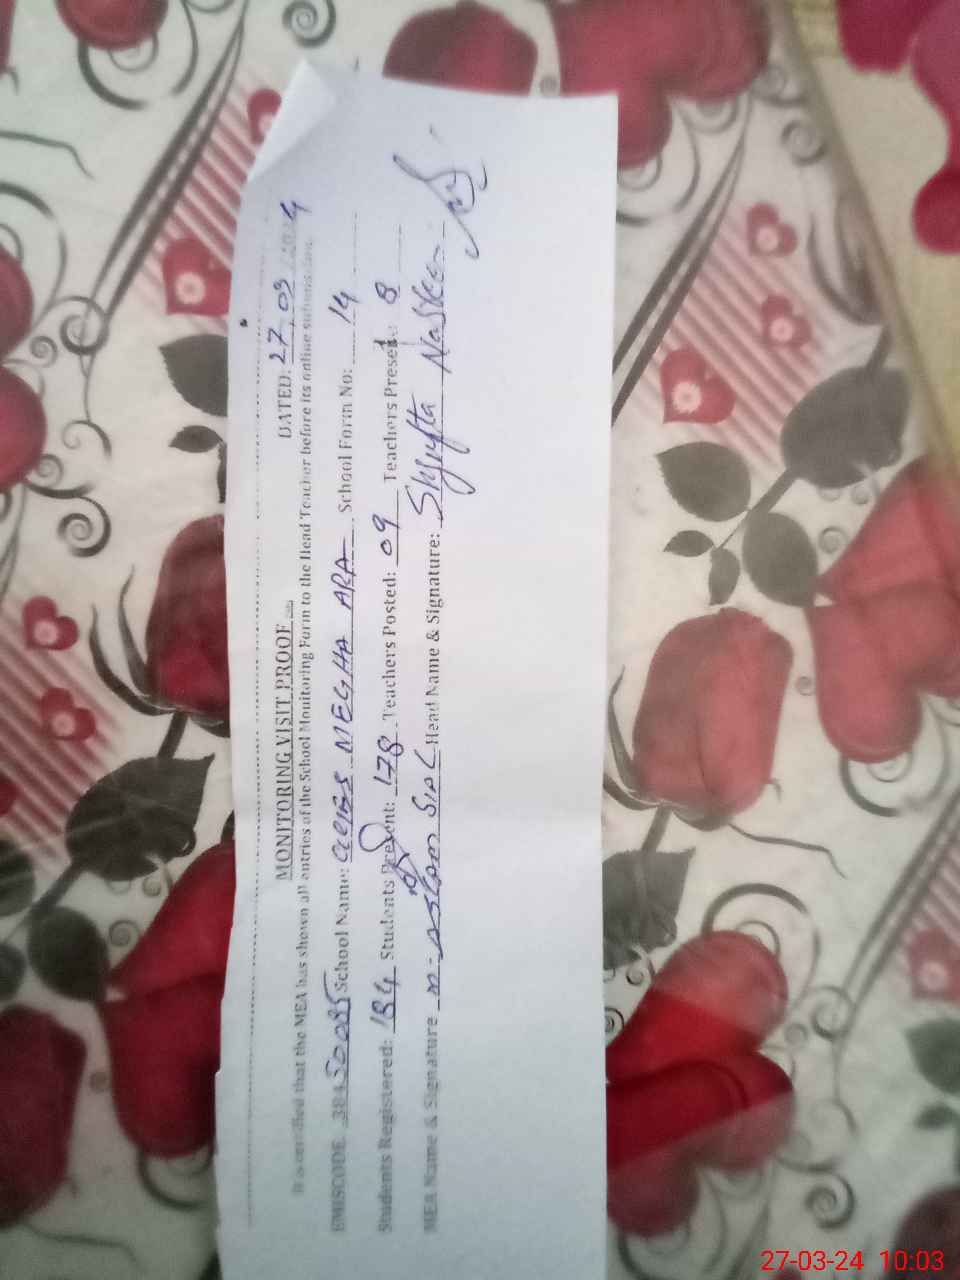 MONITORING VISIT PROOF
DATED: 27.03.2024
It is certified that the MEA has shown all entries of the School Monitoring Form to the Head Teacher before its online submission.
EMISCODE 38450085 School Name: MEGHA ARA School Form No: 14
Students Registered: 184 Students Present: 178 Teachers Posted: 09 Teachers Present: 8
MEA Name & Signature M. Aslam Sial Head Name & Signature:
27-03-24 10:03